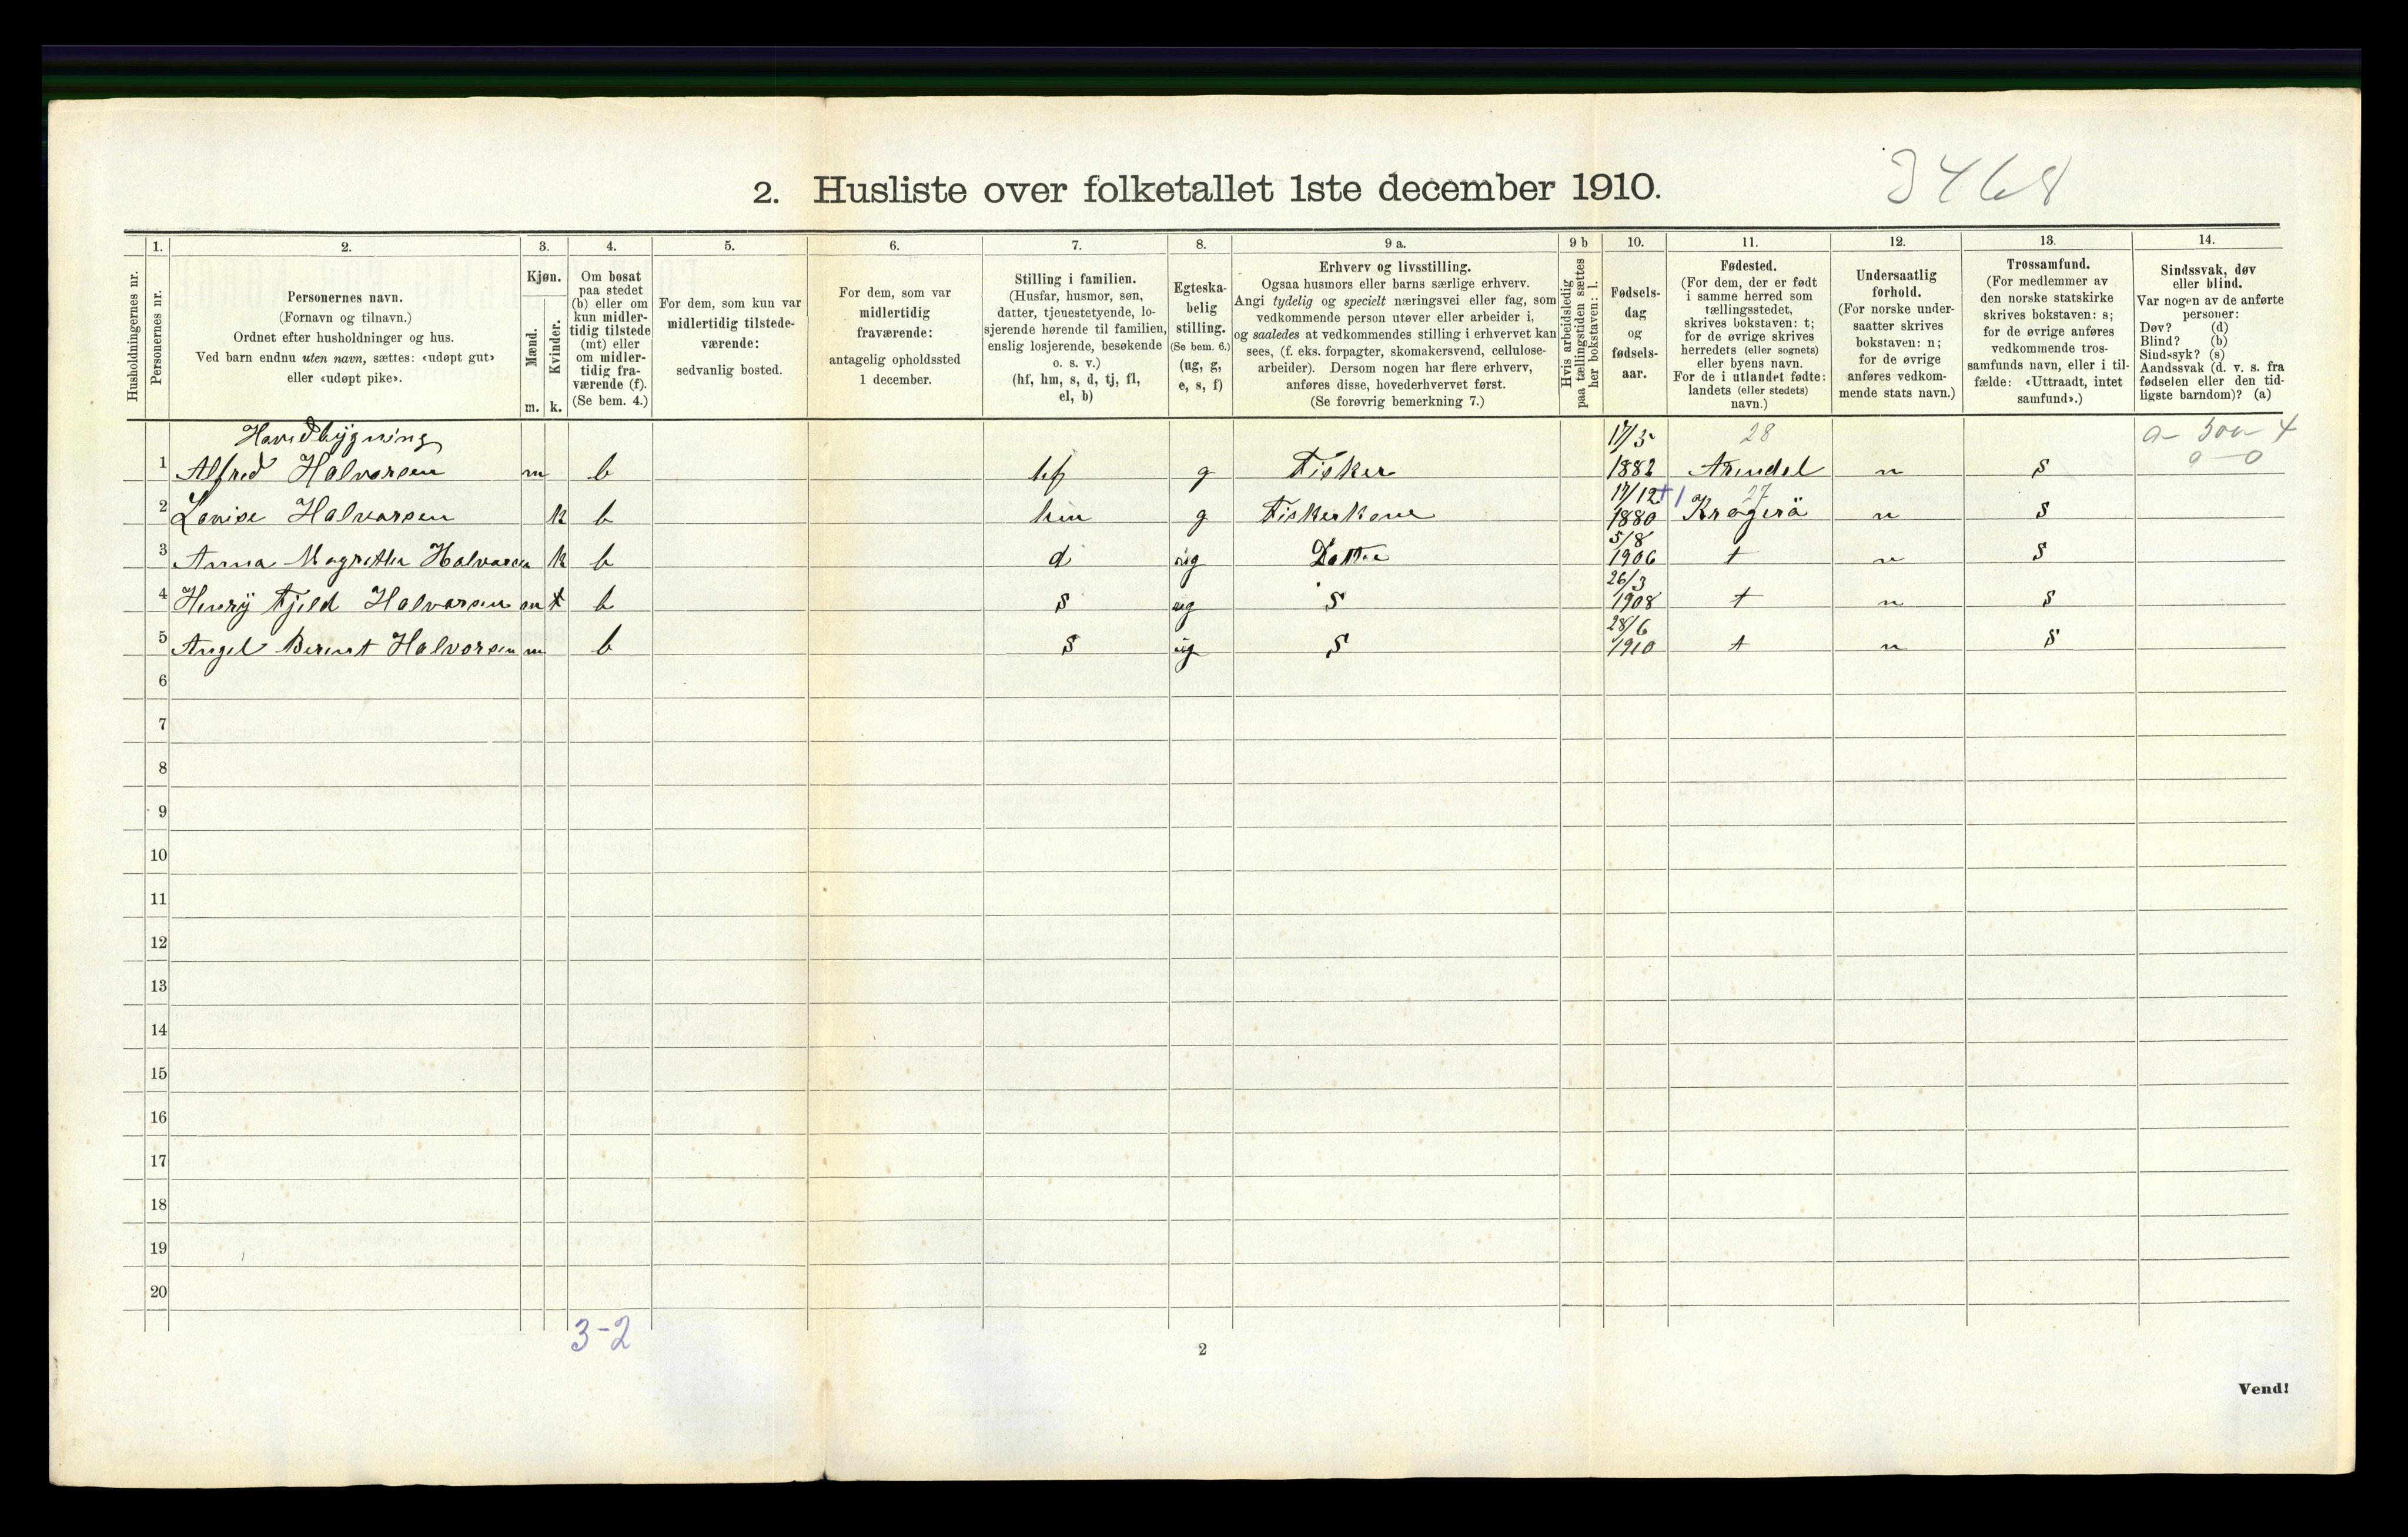 3468
2. Husliste over folketallet 1ste december 1910.
1. 2. 3. 4. 5. 6. 7. 8. 9 a. 9 b 10. 11. 12. 13. 14.
Husholdningernes nr.
Personernes nr.
Personernes navn.
(Fornavn og tilnavn.)
Ordnet efter husholdninger og hus.
Ved barn endnu uten navn, sættes: «udøpt gut»
eller «udøpt pike».
Kjøn.
Mænd.
Kvinder.
m. k.
Om bosat
paa stedet
(b) eller om
kun midler-
tidig tilstede
(mt) eller
om midler-
tidig fra-
værende (f).
(Se bem. 4.)
For dem, som kun var
midlertidig tilstede-
værende:
sedvanlig bosted.
For dem, som var
midlertidig
fraværende:
antagelig opholdssted
1 december.
Stilling i familien.
(Husfar, husmor, søn,
datter, tjenestetyende, lo-
sjerende hørende til familien,
enslig losjerende, besøkende
o. s. v.)
(hf, hm, s, d, tj, fl,
el, b)
Egteska-
belig
stilling.
(Se bem. 6.)
(ug, g,
e, s, f)
Erhverv og livsstilling.
Ogsaa husmors eller barns særlige erhverv.
Angi tydelig og specielt næringsvei eller fag, som
vedkommende person utøver eller arbeider i,
og saaledes at vedkommendes stilling i erhvervet kan
sees, (f. eks. forpagter, skomakersvend, cellulose-
arbeider). Dersom nogen har flere erhverv,
anføres disse, hovederhvervet først.
(Se forøvrig bemerkning 7.)
Hvis arbeidsledig
paa tællingstiden sættes
her bokstaven: l.
Fødsels-
dag
og
fødsels-
aar.
Fødested.
(For dem, der er født
i samme herred som
tællingsstedet,
skrives bokstaven: t;
for de øvrige skrives
herredets (eller sognets)
eller byens navn.
For de i utlandet fødte:
landets (eller stedets)
navn.)
Undersaatlig
forhold.
(For norske under-
saatter skrives
bokstaven: n;
for de øvrige
anføres vedkom-
mende stats navn.)
Trossamfund.
(For medlemmer av
den norske statskirke
skrives bokstaven: s;
for de øvrige anføres
vedkommende tros-
samfunds navn, eller i til-
fælde: «Uttraadt, intet
samfund».)
Sindssvak, døv
eller blind.
Var nogen av de anførte
personer:
Døv? (d)
Blind? (b)
Sindssyk? (s)
Aandssvak (d. v. s. fra
fødselen eller den tid-
ligste barndom)? (a)
Hovedbygning 17/5 28
1 Alfred Halvorsen m b hf g Fisker 1882 Arendal n s 0 – 0
17/12 +1 27
2 Lovise Halvorsen k b hm g Fiskerkone 1880 Kragerö n s
5/8
3 Anna Magrethe Halvorsen k b d ug Datter 1906 t n s
26/3
4 Henrÿ Fjeld Halvorsen m b s ug S 1908 t n s
28/6
5 Angel Berent Halvorsen m b s ug S 1910 t n s
6
7
8
9
10
11
12
13
14
15
16
17
18
19
20
3-2
2
Vend!